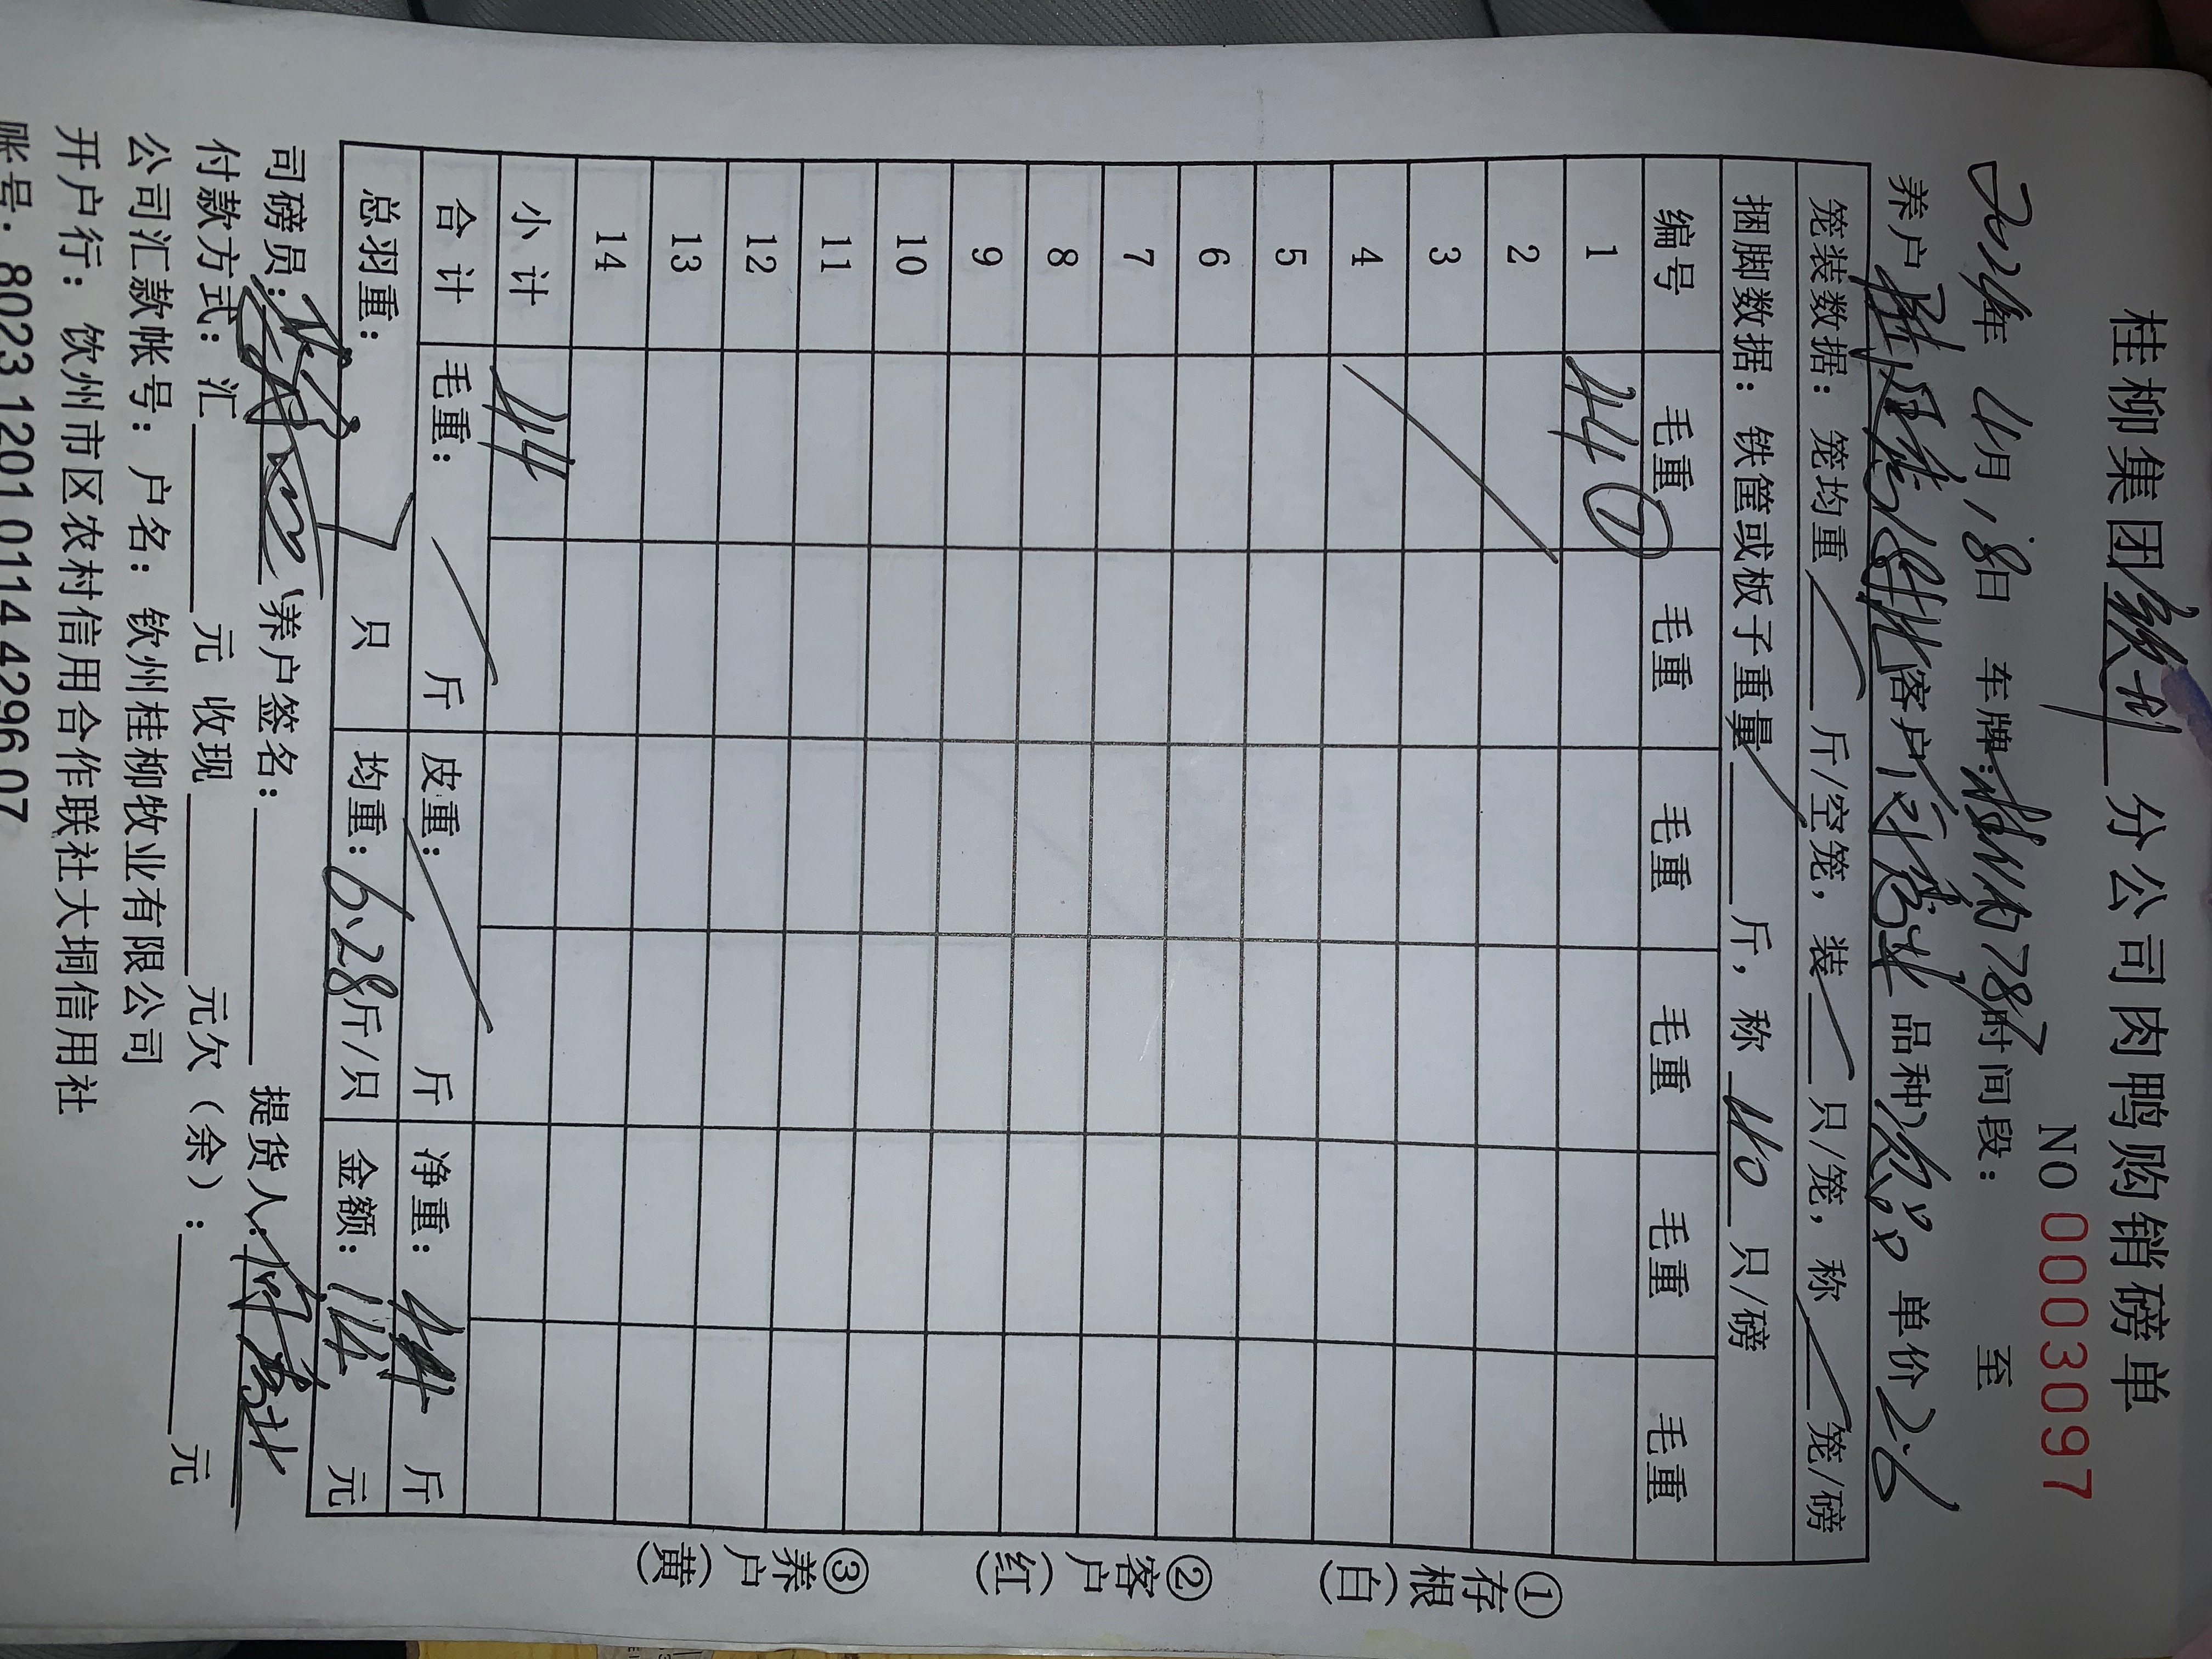 桂柳集团钦州分公司肉鸭购销磅单
NO 0003097
年 4月18日 车牌: 787时间段: 至
养户 客户 品种次品 单价2.6
笼装数据:笼均重 斤/空笼,装 只/笼,称 笼/磅
捆脚数据:铁筐或板子重量 斤,称 40 只/磅
编号 毛重 毛重 毛重 毛重 毛重 毛重
1 44
2
3
4
5
6
7
8
9
10
11
12
13
14
小计 44
合计 毛重: 斤 皮重: 斤 净重: 44 斤
总羽重: 7 只 均重: 6.28斤/只 金额: 114 元
司磅员: 养户签名: 提货人:
付款方式:汇 元 收现 元欠(余): 元
公司汇款帐号:户名:钦州桂柳牧业有限公司
开户行:钦州市区农村信用合作联社大垌信用社
账号:8023 1201 0114 4296 07
①存根(白)
②客户(红)
③养户(黄)